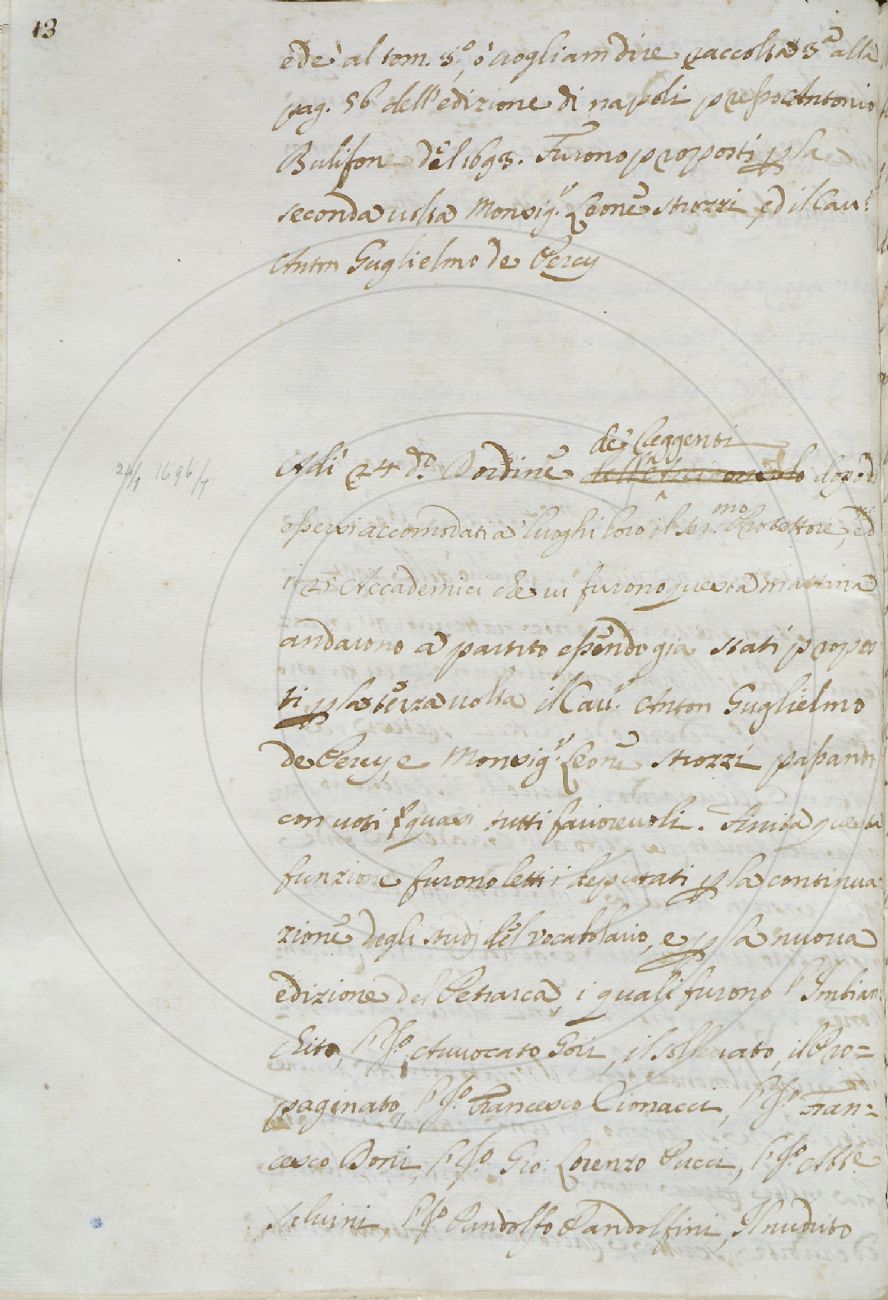 13
ed è al tom. 3.º, ò vogliam dire raccolta 3.ª alla
pag. 56 dell'edizione di napoli presso Antonio
Bulifon del 1693. Furono proposti p la
seconda volta Monsig.r Leone Strozzi, ed il Cav.r
Anton Guglielmo de Percy
de' Reggenti
Adi 24 d.o D'ordine dell' Arciconsolo dopo d'
essersi accomodati a' luoghi loro il Ser.mo Protettore, ed
i 25 Accademici che vi furono questa mattina
24/1 1696/7
andarono à partito essendo già stati propos
ti p la terza volta il Cav.r Anton Guglielmo
de Percy, e Monsig.r Leone Strozzi passando
con voti quasi tutti favorevoli. Finita questa
funzione furono letti i deputati p la continua
zione degli studi del vocabolario, e p la nuova
edizione del Petrarca, i quali furono l'Imbian
chito, l'Ill.o Avvocato Gori, il Sollevato, il Pro=
paginato, l'Ill.o Francesco Cionacci, l'Ill.o Fran=
cesco Boni, l'Ill.o Gio: Lorenzo Pucci, l'Ill.o Abb.e
Salvini, l'Ill.o Pandolfo Pandolfini, Il nudrito